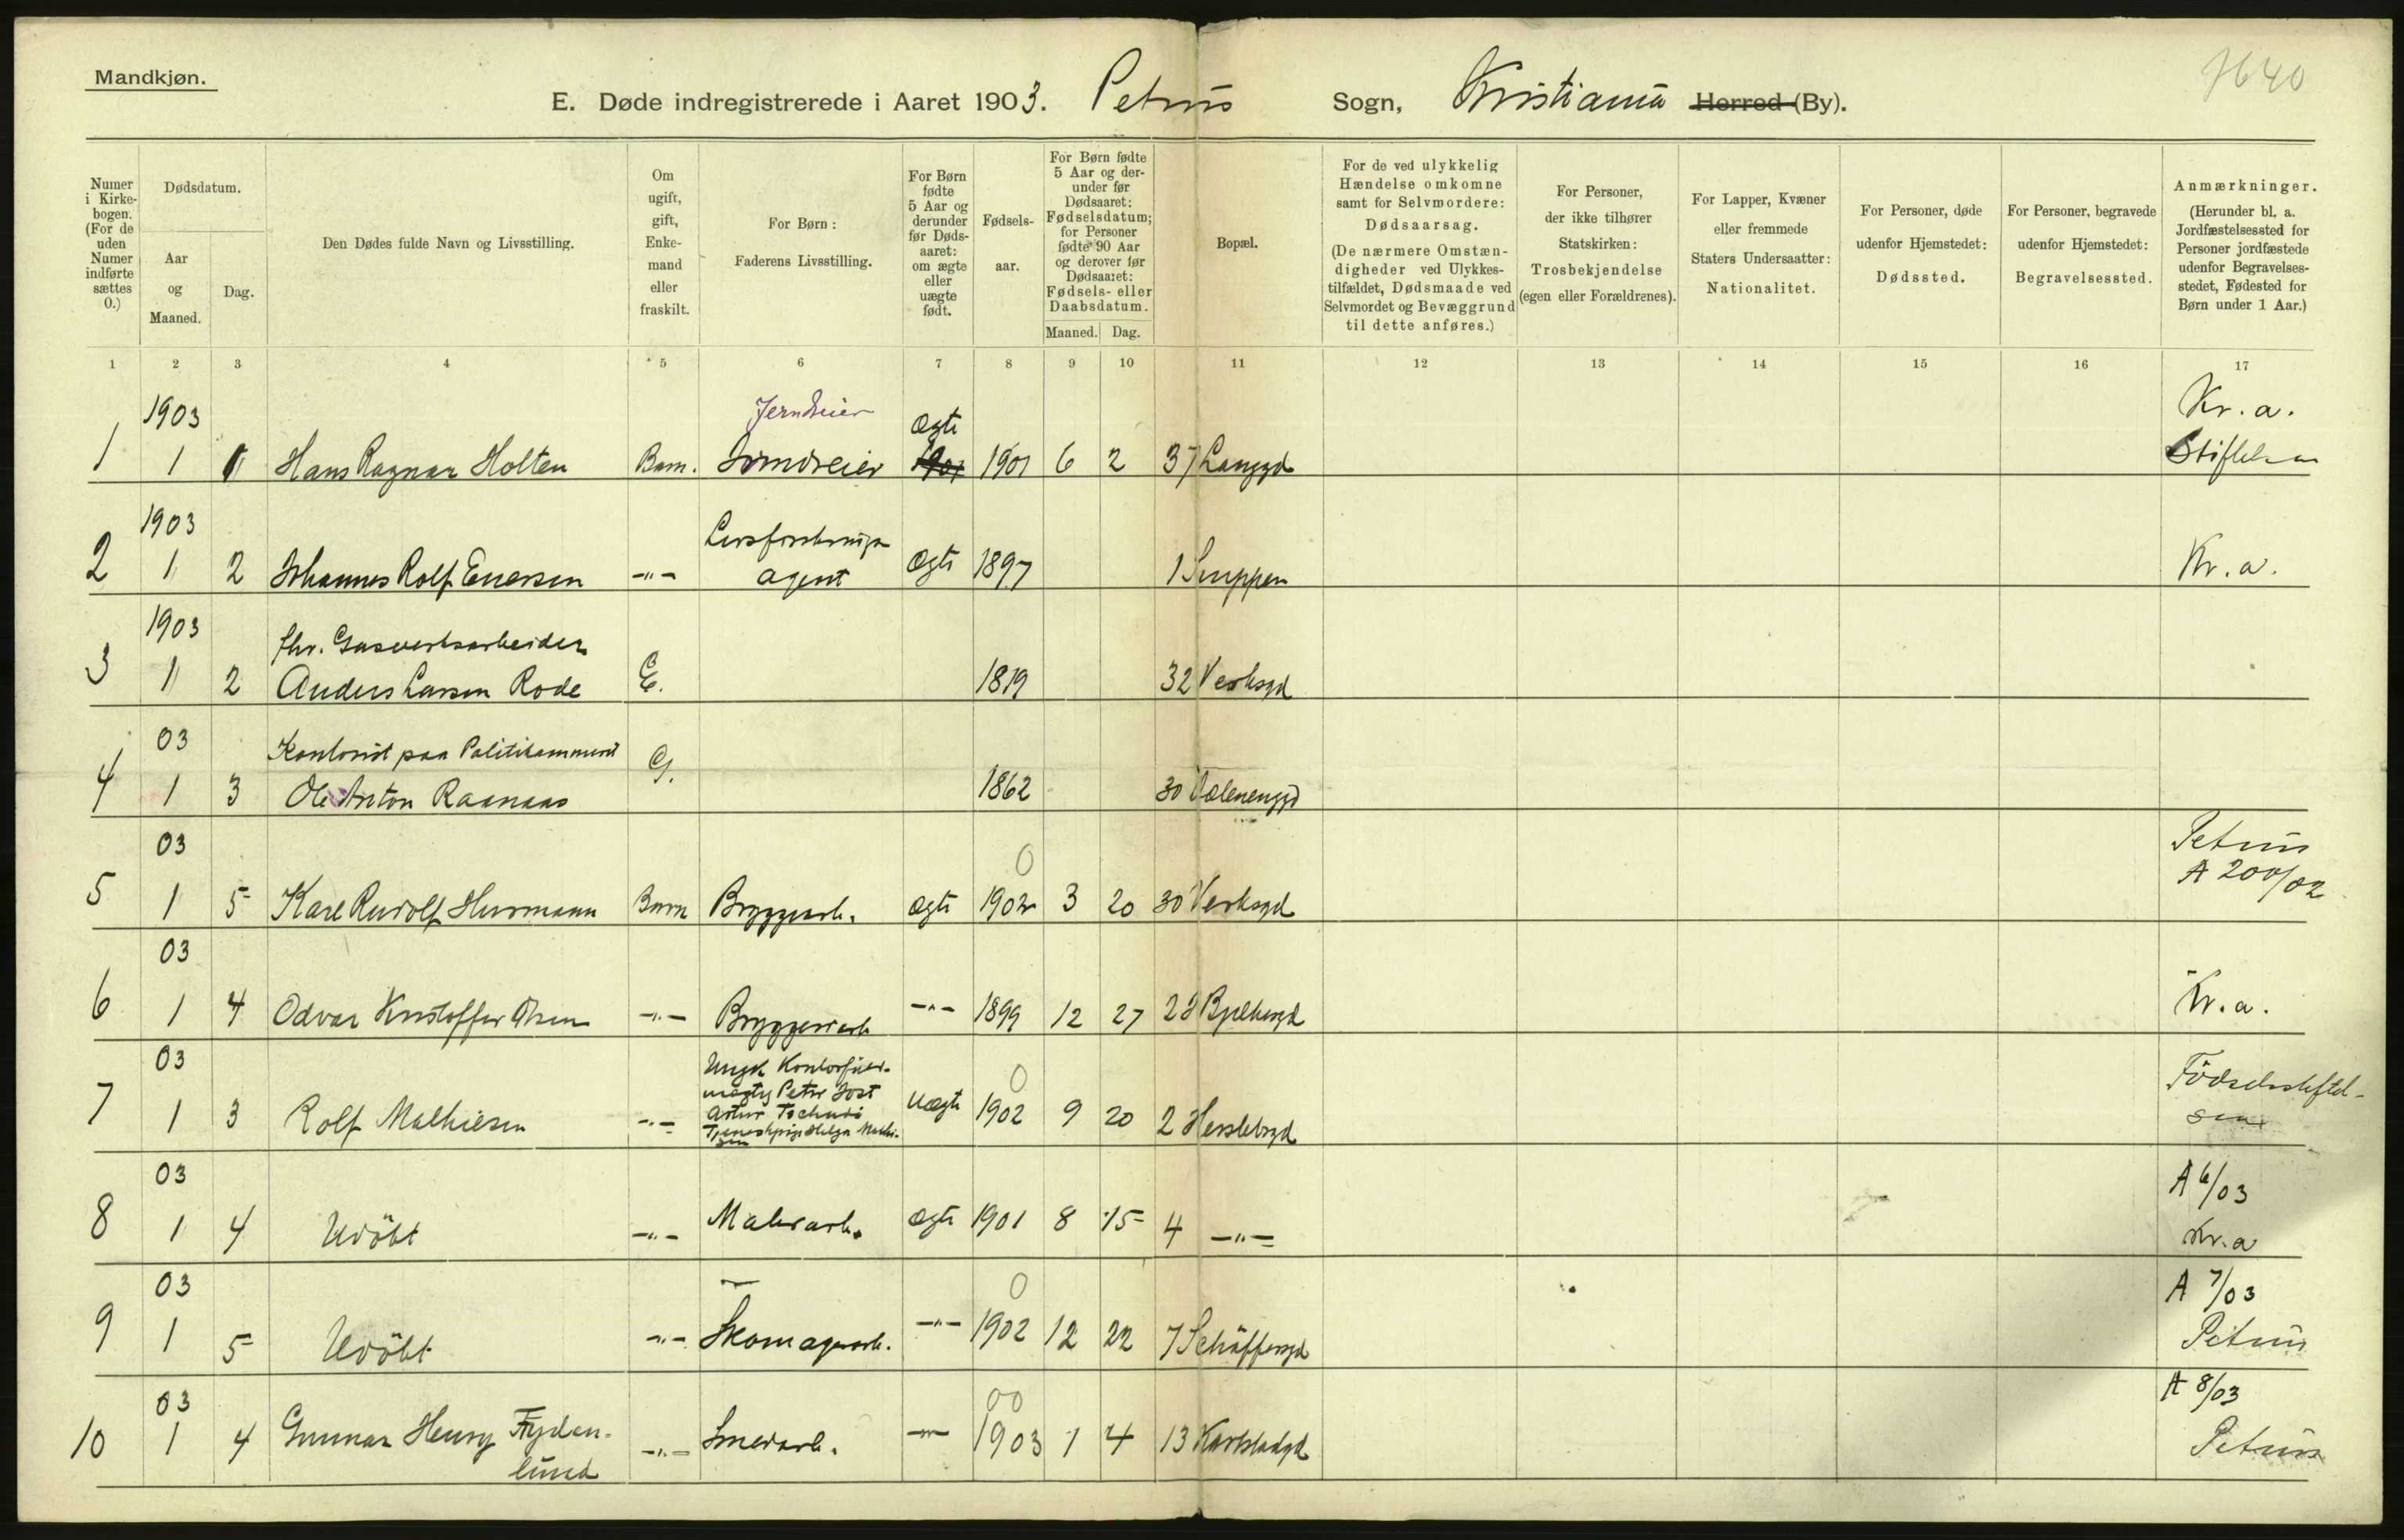 Mandkjøn.
7640
E. Døde indregistrerede i Aaret 1903. Petrus Sogn, Kristiania Herred (By).
Numer i Kirkebogen. (For de uden Numer indførte sættes 0.)
Dødsdatum.
Aar og Maaned.
Dag.
Den Dødes fulde Navn og Livsstilling.
Om ugift, gift, Enkemand eller fraskilt.
For Børn: Faderens Livsstilling.
For Børn fødte 5 Aar og derunder før Dødsaaret: om ægte eller uægte født.
Fødselsaar.
For Børn fødte 5 Aar og derunder før Dødsaaret: Fødselsdatum; for Personer fødte 90 Aar og derover før Dødsaaret: Fødsels- eller Daabsdatum.
Maaned. Dag.
Bopæl.
For de ved ulykkelig Hændelse omkomne samt for Selvmordere: Dødsaarsag. (De nærmere Omstændigheder ved Ulykkestilfældet, Dødsmaade ved Selvmordet og Bevæggrund til dette anføres.)
For Personer, der ikke tilhører Statskirken: Trosbekjendelse (egen eller Forældrenes).
For Lapper, Kvæner eller fremmede Staters Undersaatter: Nationalitet.
For Personer, døde udenfor Hjemstedet: Dødssted.
For Personer, begravede udenfor Hjemstedet: Begravelsessted.
Anmærkninger. (Herunder bl. a. Jordfæstelsessted for Personer jordfæstede udenfor Begravelsesstedet, Fødested for Børn under 1 Aar.)
1 2 3 4 5 6 7 8 9 10 11 12 13 14 15 16 17
1903 Jerndreier ægte Kr. a.
1 1 1 Hans Ragnar Holten Barn. Jerndreier 1901 1901 6 2 37 Langgd Stiftelsen
1903 Livsforsikrings
2 1 2 Johannes Rolf Enersen -"- agent ægte 1897 1 Kr. a.
1903 fhv. Gasverksarbeider
3 1 2 Anders Larsen Rode E. 1819 32 Verksgd
03 Kontorist paa Politikammeret
4 1 3 Ole Anton Raanaas G. 1862 30 Vålerenggd
03 0 Petrus
5 1 5 Karl Rudolf Hurmann Barn Bryggeriarb. ægte 1902 3 20 30 Verksgd A 200/02
03
6 1 4 Odvar Kristoffer Olsen -"- Bryggeriarb -"- 1899 12 27 28 Bjelkesgd Kr. a.
03 Ungk. Kontorfuld- 0 Födselsstiftel-
mægtig Peter Jost
7 1 3 Rolf Mathiesen -"- Artur Tschudi uægte 1902 9 20 2 Herslebsgd sen
Tjenestepige Helga Mathi-
sen
03 A 6/03
8 1 4 Udöbt -"- Malerarb. ægte 1901 8 15 4 -"- Kr. a
03 0 A 7/03
9 1 5 Udöbt -"- Skomagerarb. -"- 1902 12 22 7 Schäffersgd Petrus
03 00 A 8/03
10 1 4 Gunnar Henry Frydenlund -"- Smedarb. -"- 1903 1 4 13 Karlstadgd Petrus